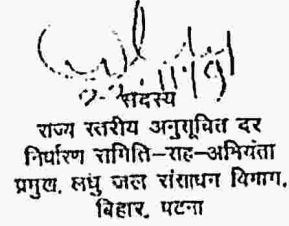 सदस्य
राज्य स्तरीय अनुसूचित दर
निर्धारण समिति-सह-अभियंता
प्रमुख, लघु जल संसाधन विभाग,
बिहार, पटना